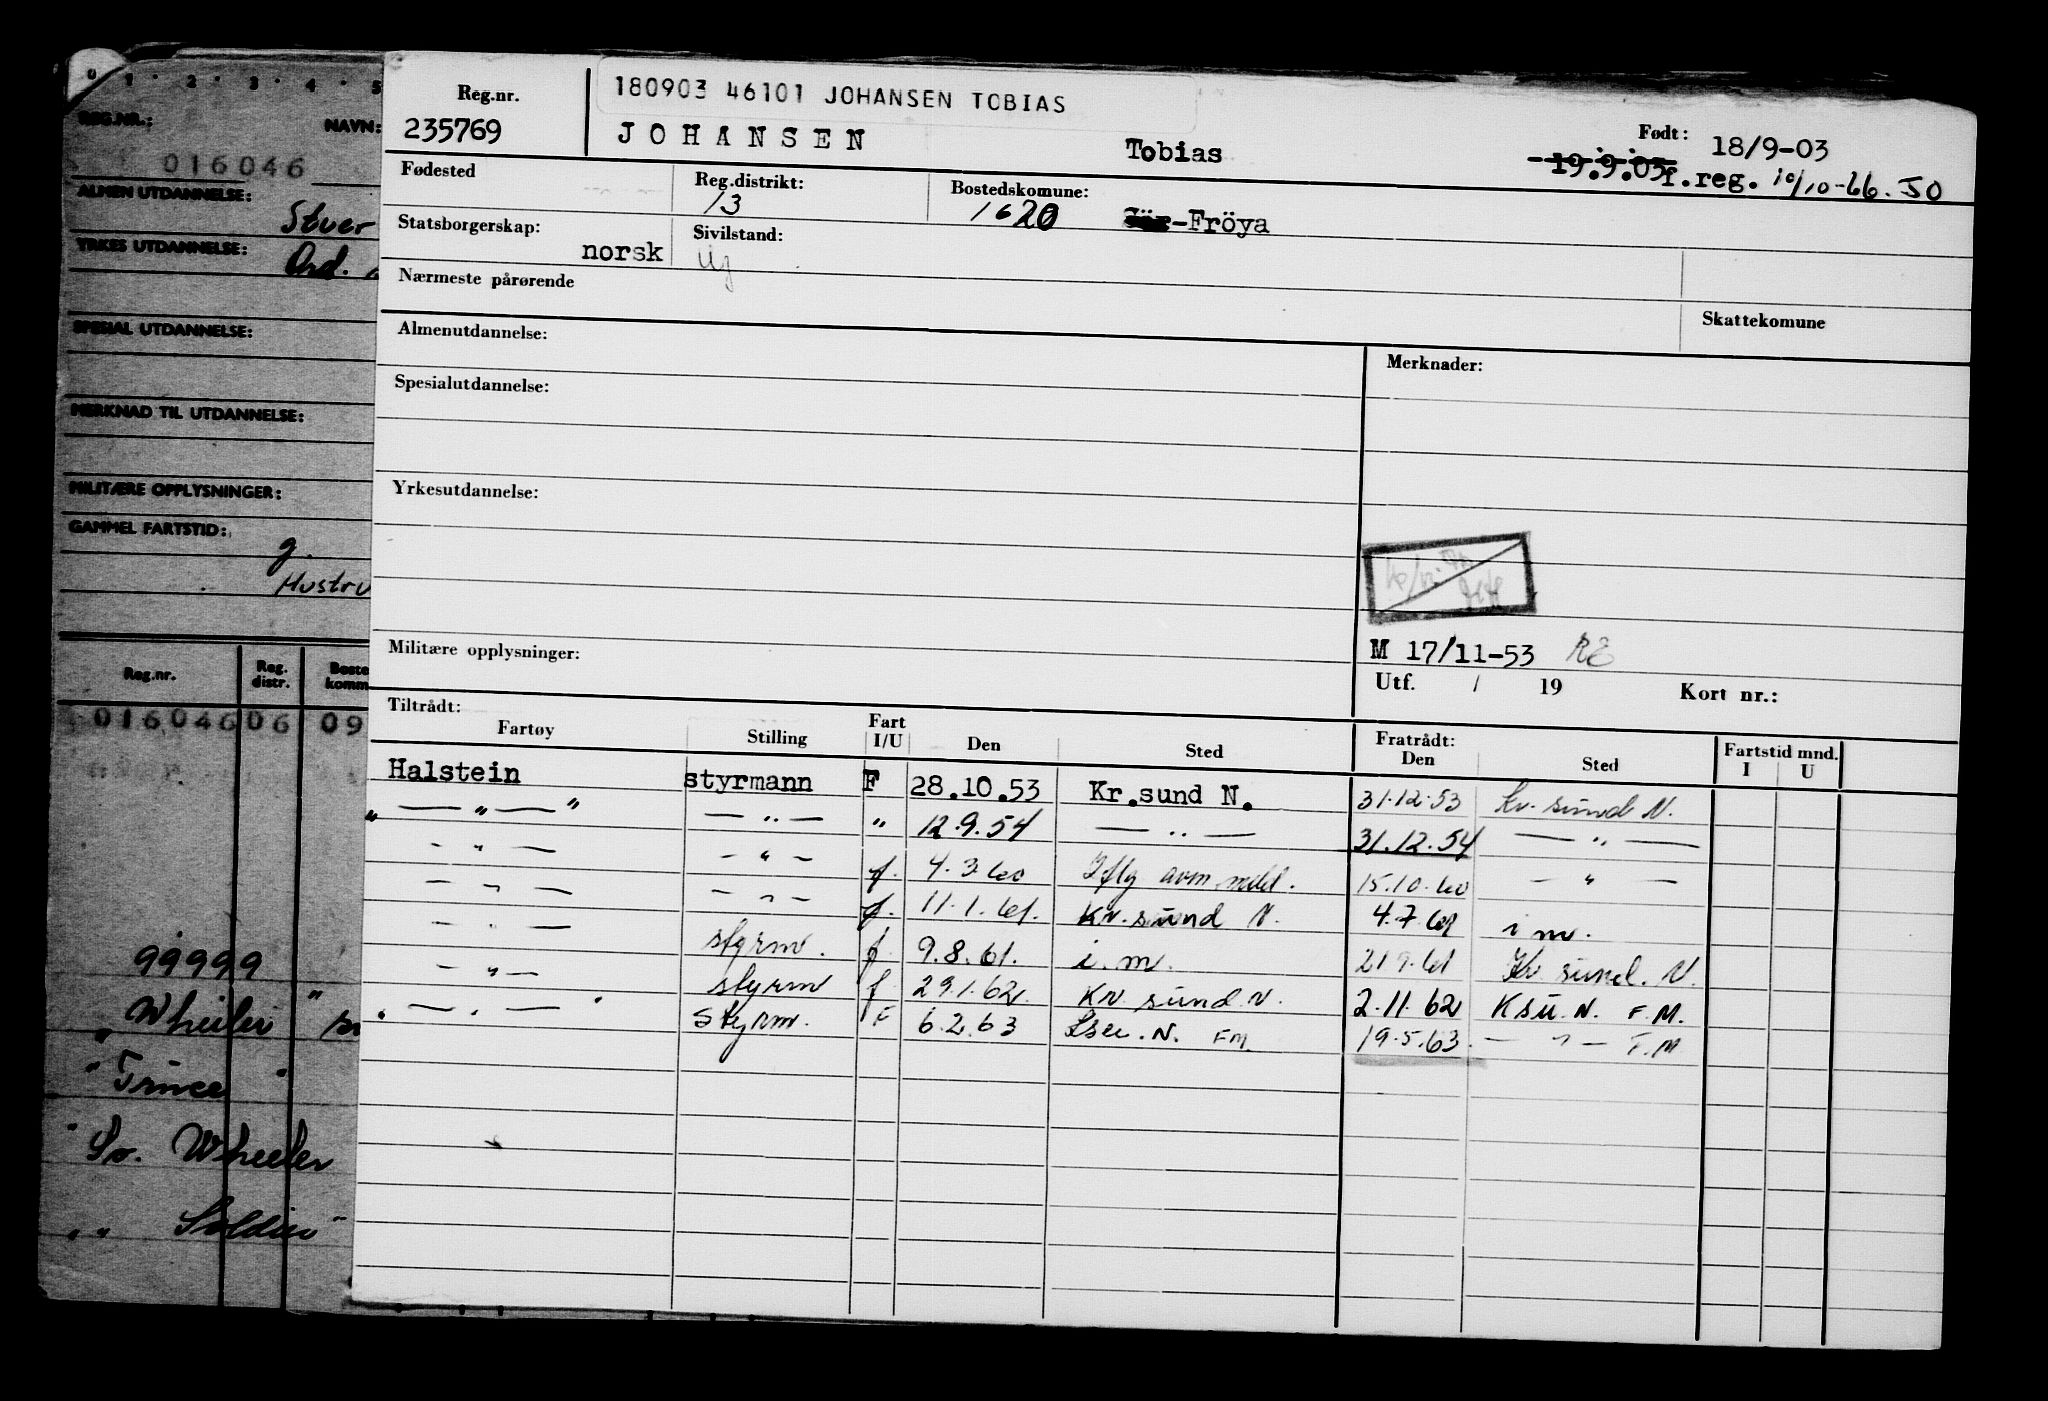 0 1 2 3 4 5
REG.NR.: NAVN:
016046
ALMEN UTDANNELSE:
YRKES UTDANNELSE:
Ord.
SPESIAL UTDANNELSE:
MERKNAD TIL UTDANNELSE:
MILITÆRE OPPLYSNINGER:
GAMMEL FARTSTID:
g.
Hustru
Reg.nr. Reg. distr. Boste komm
016046 06 09
99999
" Wheeler "
" Truce "
" So. Wheeler
" " Soldier "
180903 46101 JOHANSEN TOBIAS
Reg.nr. 235769
JOHANSEN Tobias
Født: 18/9-03
19.9.03 f.reg. 10/10-66. JO
Fødested
Reg.distrikt: 13
Bostedskomune: 1620 -Fröya
Statsborgerskap: norsk
Sivilstand: Ug
Nærmeste pårørende
Skattekomune
Almenutdannelse:
Merknader:
Spesialutdannelse:
Yrkesutdannelse:
Militære opplysninger:
M 17/11-53 RE
Utf. / 19 Kort nr.:
Tiltrådt: Fratrådt: Fartstid mnd.
Fartøy Stilling Fart I/U Den Sted Den Sted I U
Halstein styrmann F 28.10.53 Kr.sund N. 31.12.53 Kr. sund N.
" — " — " — " — " 12.9.54 — " — 31.12.54 — " —
- " — - " - f. 4.3.60 Iflg avm.mdl. 15.10.60 — " —
— " — — " — f. 11.1.61. Kr.sund N. 4.7.61 i m.
- " — styrm. f 9.8.61. i.m. 21.9.61 Kr sund. N.
- " — styrm f 29.1.62. Kr. sund.N. 2.11.62 Ksu.N. F.M.
" — " — " Styrm. F 6.2.63 Ksu.N. FM. 19.5.63. — " — F.M